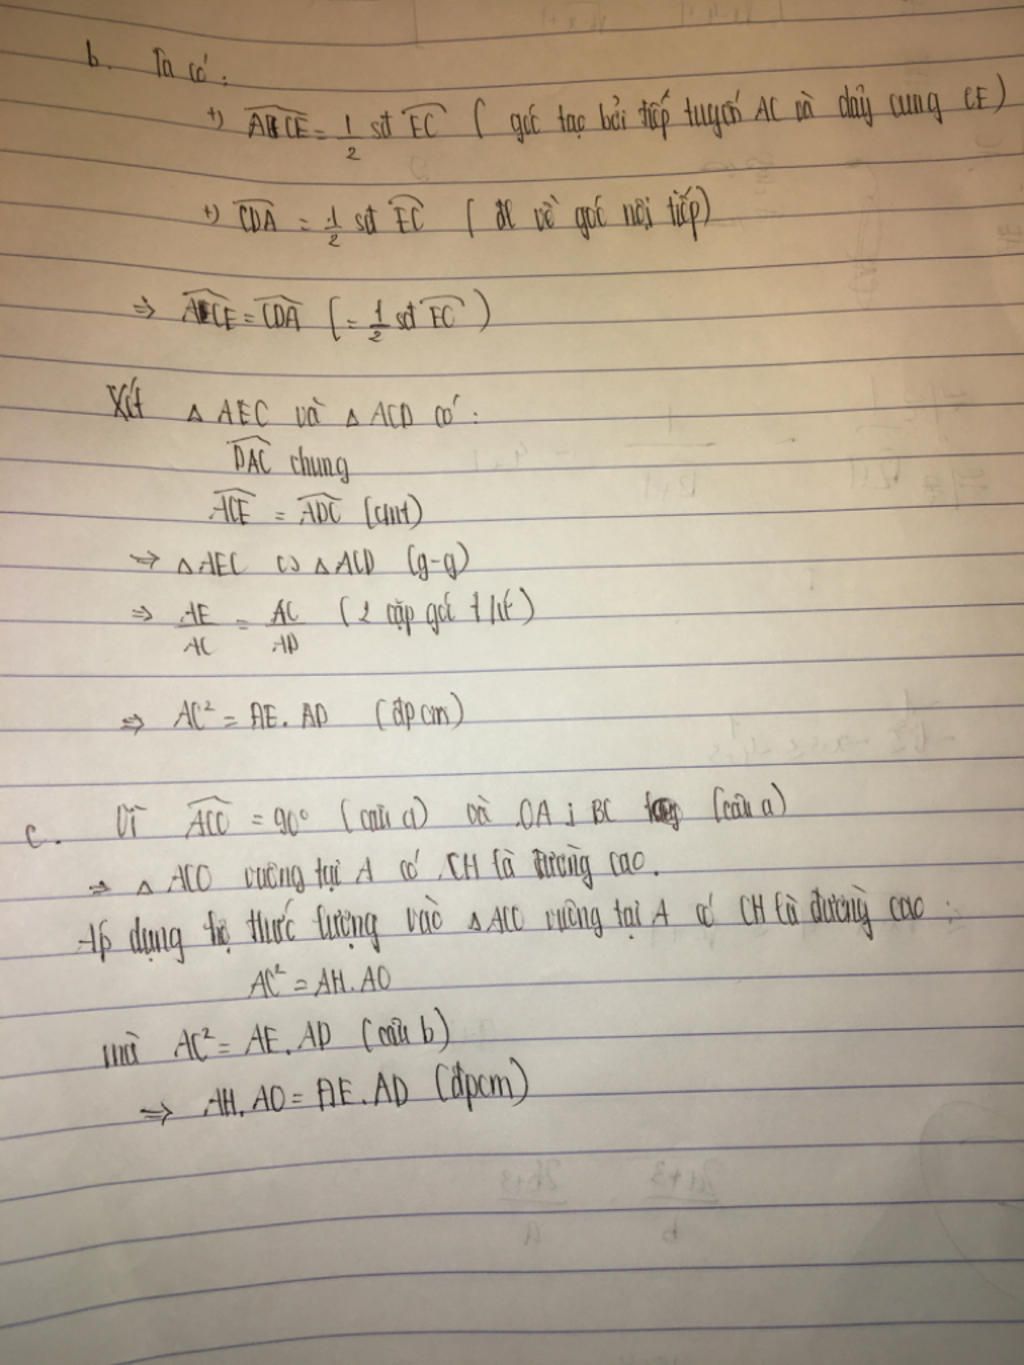 b. Ta có:
+) ACE = 1/2 sđ EC ( góc tạo bởi tiếp tuyến AC và dây cung CE)
+) CDA = 1/2 sđ EC ( ĐL về góc nội tiếp)
⇒ ACE = CDA (= 1/2 sđ EC)
Xét △ AEC và △ ACD có:
DAC chung
ACE = ADC (cmt)
⇒ △AEC ∽ △ACD (g-g)
⇒ AE/AC = AC/AD (2 cặp góc t/ứ)
⇒ AC² = AE. AD (đpcm)
c. Vì ACO = 90° (câu a) và OA ⊥ BC (câu a)
⇒ △ ACO vuông tại A có CH là đường cao.
Áp dụng hệ thức lượng vào △ACO vuông tại A có CH là đường cao:
AC² = AH. AO
mà AC² = AE. AD (câu b)
⇒ AH. AO = AE. AD (đpcm)